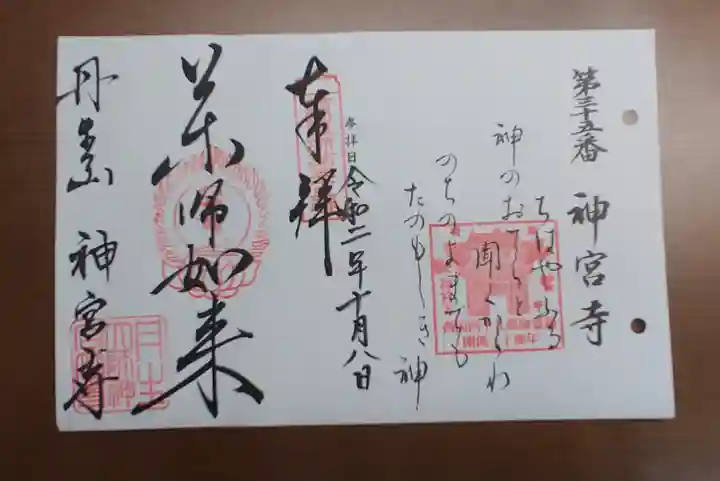 第三十五番 神宮寺
ちはやふる
神のおてらと
聞くからわ
のちのよまでも
たのもしき神
奉拝
参拝日 令和二年十月八日
薬師如来
神宮寺